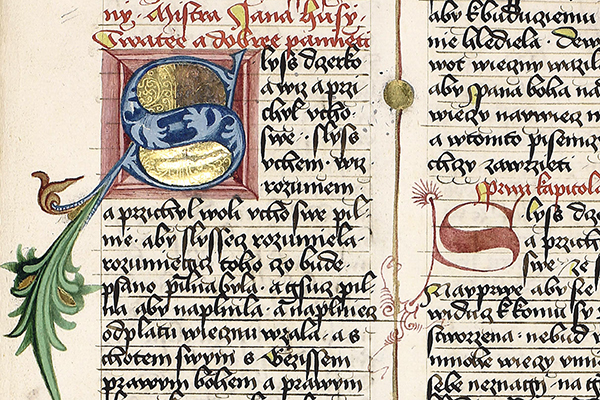 ny · Mistra Jana Husy ·
Swatee a dobree pamieti
Slyss dczerko
a wiz a przi
chyl vcho
swe · slyss
vchem · wiz
rozumem
a przichyl woli vcho swe pil-
nie · aby slyssecz rozumiela ·
rozumiegicz toho czo bude
psano pilna byla · a gsucz pil
na aby naplnila · a naplniecz
odplatu wiecznu wzala · a s
chotem swym s Gezissem
prawym bohem a prawym
aby k buduziemu
nie hlediela · dew
wot wieczny wazil
aby pana boha na
wiecz naywiecz m
a w tomto pisemcz
chczy zawrzieti
Prwa kapitola
Slyss dcze
a przich
swe · ze
Nayprwe aby se
widucz k komu sy
stworzena · nebud
mnohe wieczy vmie
sebe neznagy · na